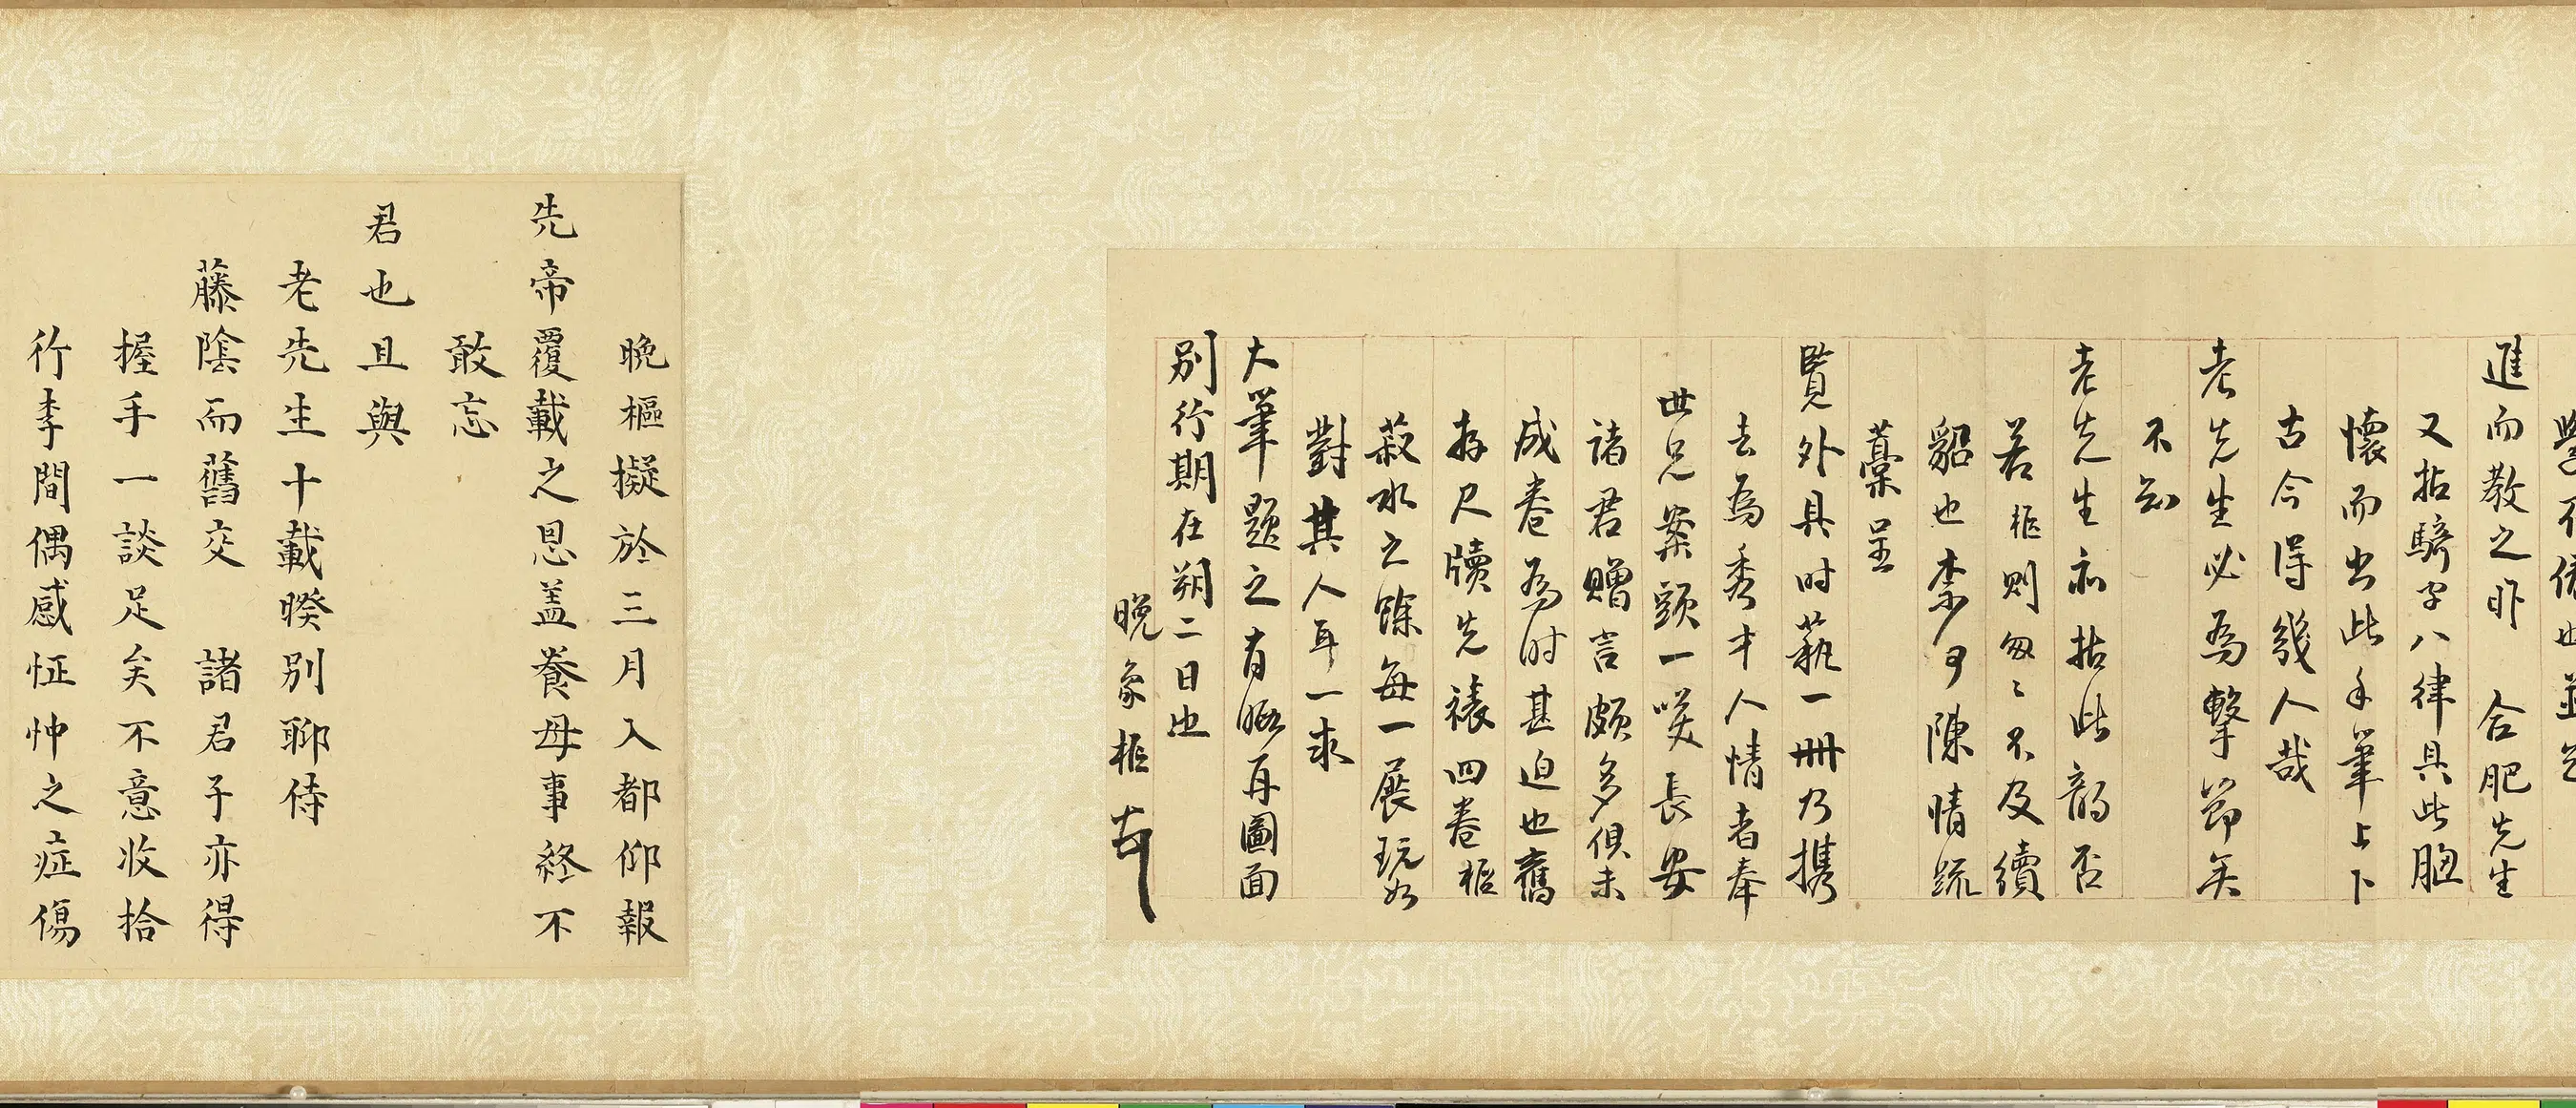 進而教之耶 合肥先生
又拈騎字八律具此胸
懷而出此手筆上下
古今得幾人哉
老先生必為擊節矣
不知
老先生亦拈此韻否
若樞則匆匆不及續
貂也李 陳情疏
藁呈
覽外具時藝一冊乃攜
去為秀才人情者奉
世兄案頭一笑長安
諸君贈言頗多俱未
成卷為時甚迫也舊
存尺牘先裱四卷樞
菽水之餘每一展玩如
對其人耳一求
大筆題之有 再圖面
別行期在朔二日也
晚象樞
晚樞擬於三月入都仰報
先帝覆載之恩盖養母事終不
敢忘
君也且與
老先生十載暌別聊侍
藤陰而舊交 諸君子亦得
握手一談足矣不意收拾
行李間偶感怔忡之症傷